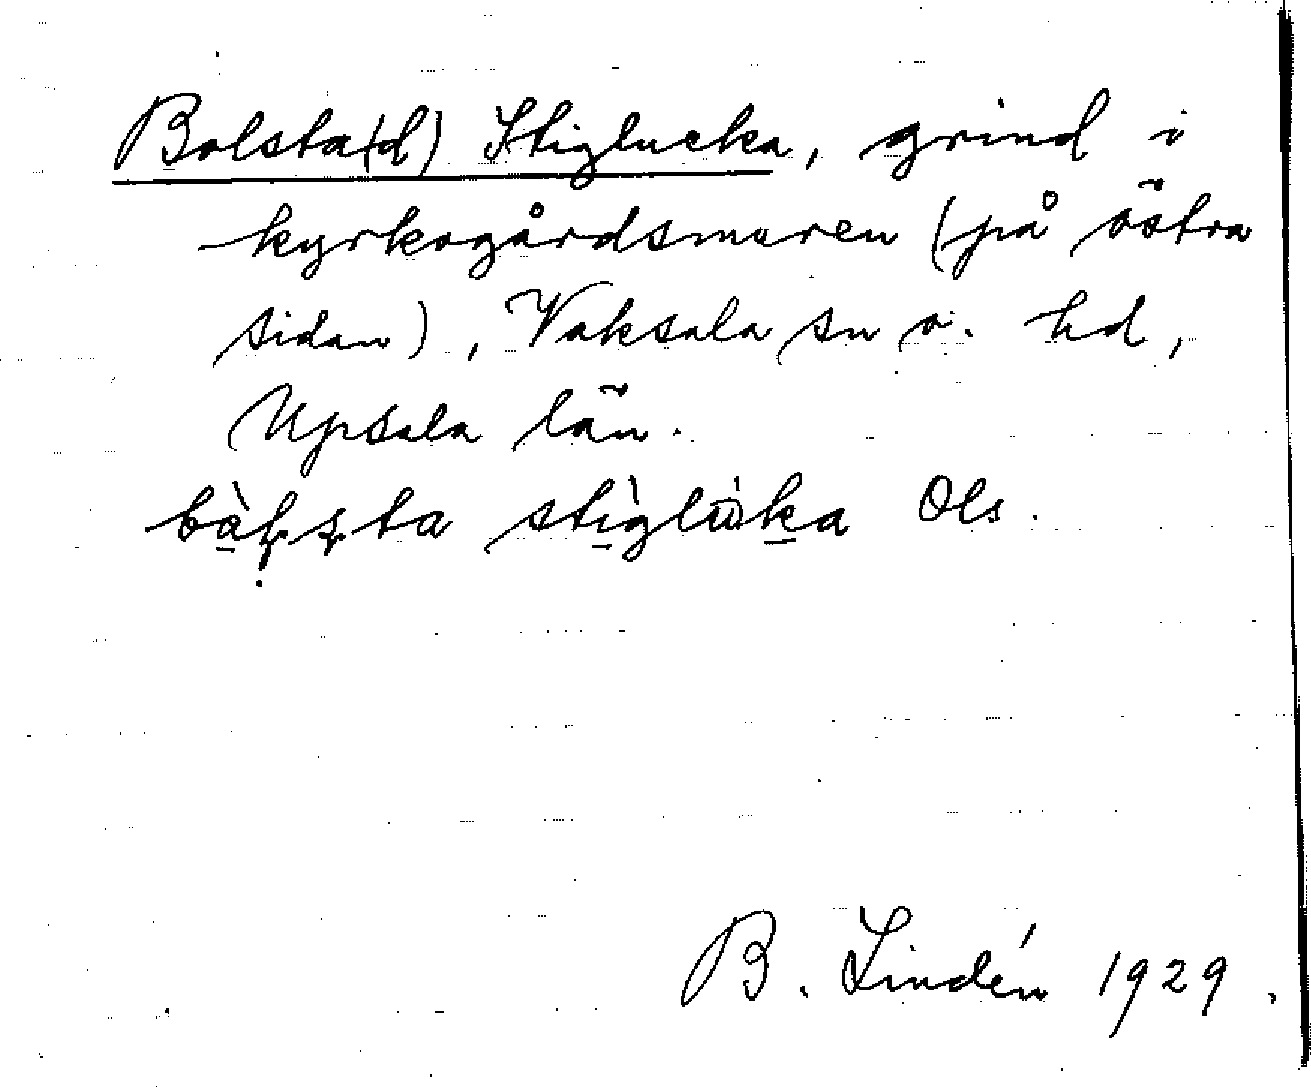 Bolsta(d) Stiglucka, grind i
kyrkogårdsmuren (på östra
sidan), Vaksala sn o. hd,
Upsala län.
stìglùka Ols.
B. Lindén 1929.